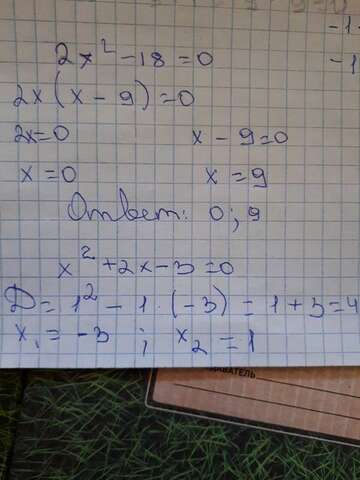 -1
-1
2x² - 18 = 0
2x(x - 9) = 0
2x=0 x - 9=0
x = 0 x = 9
Ответ: 0; 9
x² + 2x - 3 = 0
D = 1² - 1 · (-3) = 1 + 3 = 4
x₁ = -3 ; x₂ = 1